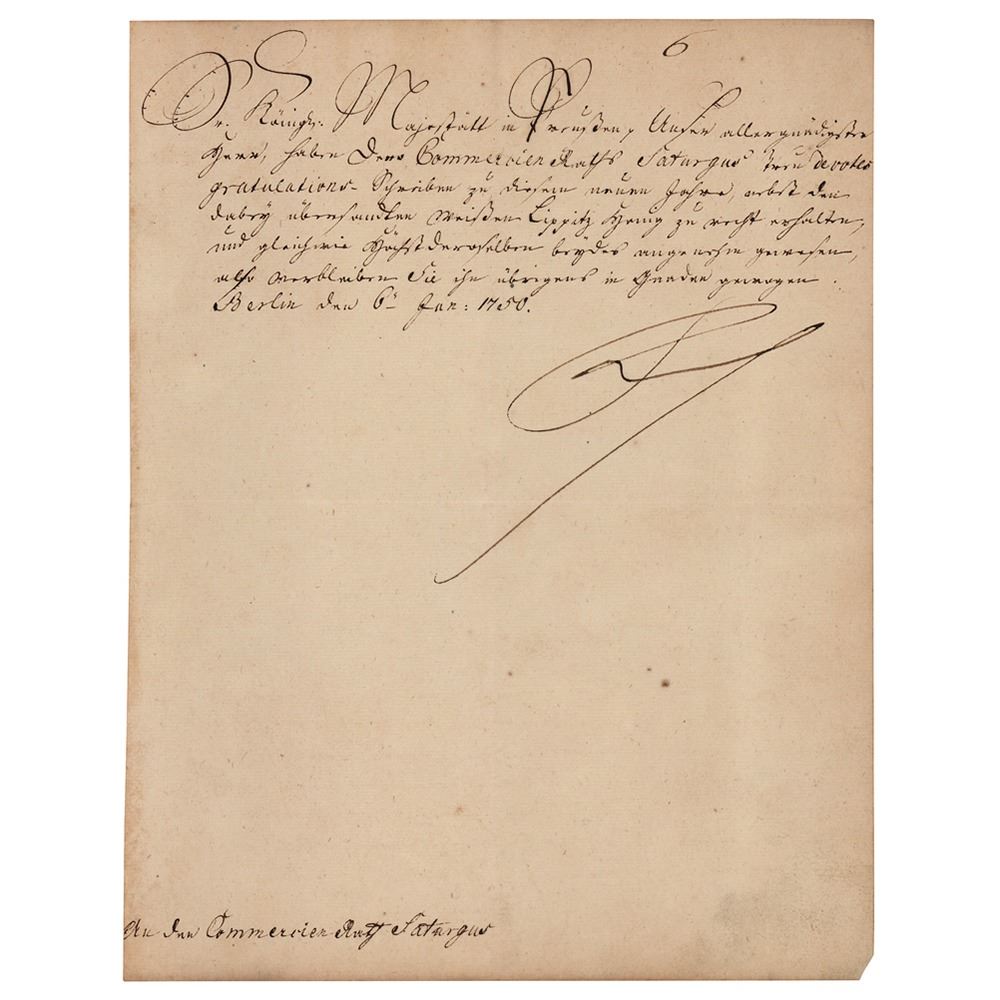 6
Sr. Königl: Majestätt in Preußen, Unser allergnädigster
Herr, haben Dero Commercien Raths Saturgus treu devotes
gratulations-Schreiben zu diesem neuen Jahre, nebst den
dabey übersandten weißen Lippitz Honig zu recht erhalten,
und gleichwie Höchst deroselben beydes angenehm gewesen,
also verbleiben Sie ihm übrigens in Gnaden gewogen.
Berlin den 6ten Jan: 1750.
An den Commercien Rath Saturgus